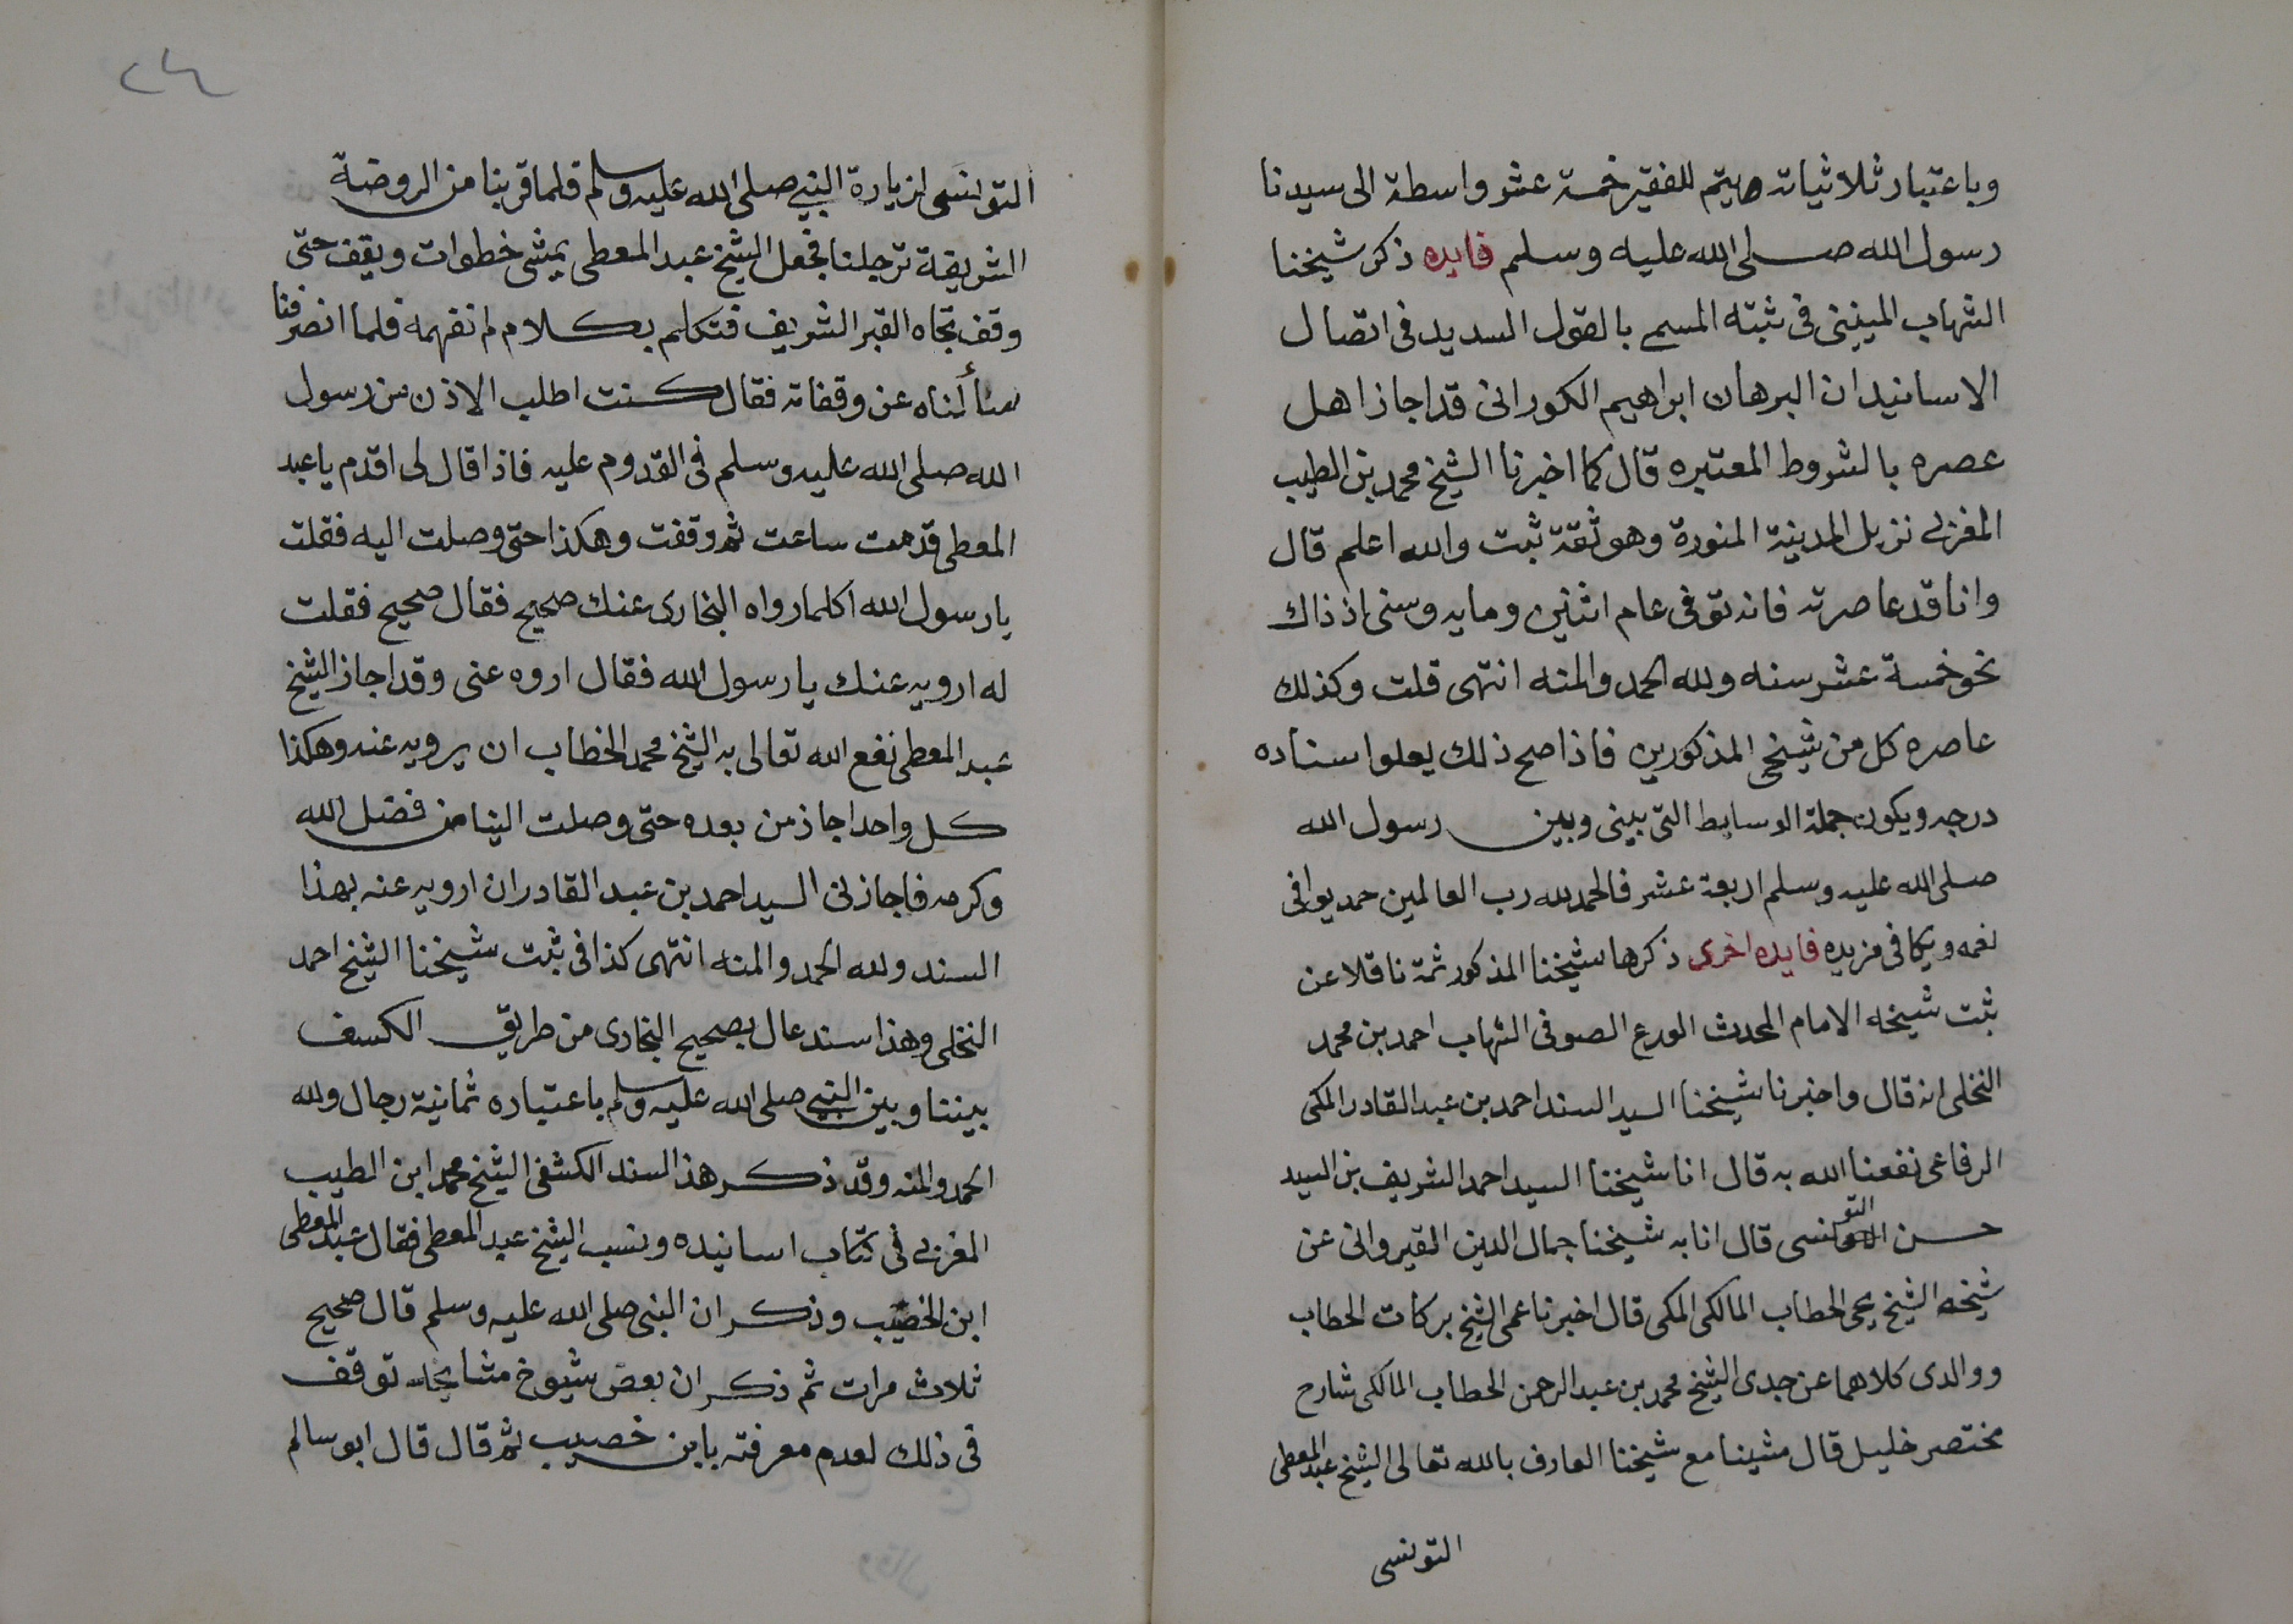 وباعتبار ثلاثياته ميتم للفقير خمسة عشر واسطة الى سيدنا
رسول الله صلى الله عليه وسلم فايده ذكر شيخنا
الشهاب المنينى فى ثبته المسمى بالقول السديد فى اتصال
الاسانيد ان البرهان ابراهيم الكورانى قد اجاز اهل
عصره بالشروط المعتبره قال كما اخبرنا الشيخ محمد بن الطيب
المغربى نزيل المدينة المنورة وهو ثقة ثبت والله اعلم قال
وانا قد عاصرته فانه توفى عام اثنين ومايه وسنى اذ ذاك
نحو خمسة عشر سنه ولله الحمد والمنه انتهى قلت وكذلك
عاصره كل من شيخى المذكورين فاذا صح ذلك يعلوا سناده
درجه ويكون جملة الوسايط التى بينى وبين رسول الله
صلى الله عليه وسلم اربعة عشر فالحمد لله رب العالمين حمد يوافى
نعمه ويكافى مزيده فايده اخرى ذكرها شيخنا المذكور ثمة ناقلا عن
ثبت شيخه الامام المحدث الورع الصوفى الشهاب احمد بن محمد
النخلى انه قال واخبرنا شيخنا السيد السند احمد بن عبد القادر المكى
الرفاعى نفعنا الله به قال انا شيخنا السيد احمد الشريف بن السيد
حسن التونسى قال انا به شيخنا جمال الدين القيروانى عن
شيخه الشيخ يحى الحطاب المالكى المكى قال اخبرنا عمى الشيخ بركات الحطاب
ووالدى كلاهما عن جدى الشيخ محمد بن عبد الرحمن الحطاب المالكى شارح
مختصر خليل قال مشينا مع شيخنا العارف بالله تعالى الشيخ عبد المعطى
التونسى
٢٤
التوانسى لزيارة النبى صلى الله عليه وسلم فلما قربنا من الروضة
الشريفة ترجلنا فجعل الشيخ عبد المعطى يمشى خطوات ويقف حتى
وقف تجاه القبر الشريف فتكلم بكلام لم نفهمه فلما انصرفنا
سألناه عن وقفاته فقال كنت اطلب الاذن من رسول
الله صلى الله عليه وسلم فى القدوم عليه فاذا قال لى اقدم يا عبد
المعطى قدمت ساعت ثم وقفت وهكذا حتى وصلت اليه فقلت
يا رسول الله اكلما رواه البخارى عنك صحيح فقال صحيح فقلت
له ارويه عنك يا رسول الله فقال اروه عنى وقد اجاز الشيخ
عبد المعطى نفع الله تعالى به الشيخ محمد الخطاب ان يرويه عنه وهكذا
كل واحد اجاز من بعده حتى وصلت الينا من فضل الله
وكرمه فاجازنى السيد احمد بن عبد القادر ان ارويه عنه بهذا
السند ولله الحمد والمنه انتهى كذا فى ثبت شيخنا الشيخ احمد
النخلى وهذا سند عال بصحيح البخارى من طريق الكسف
بيننا وبين النبى صلى الله عليه وسلم باعتباره ثمانية رجال ولله
الحمد والمنه وقد ذكر هذا السند الكشفى الشيخ محمد ابن الطيب
المغربى فى كتاب اسانيده ونسب الشيخ عبد المعطى فقال عبد المعطى
ابن الخصيب وذكر ان النبى صلى الله عليه وسلم قال صحيح
ثلاث مرات ثم ذكر ان بعض شيوخ مشايخه توقف
فى ذلك لعدم معرفته بابن خصيب ثم قال قال ابو سالم